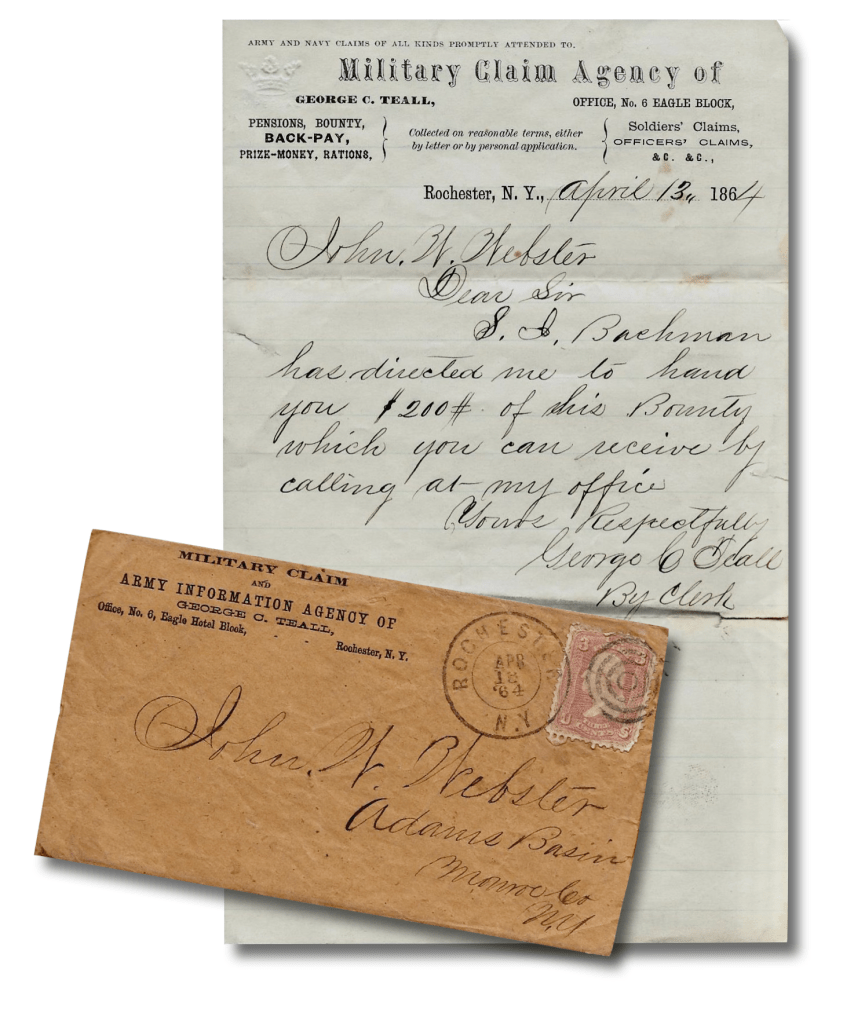 ARMY AND NAVY CLAIMS OF ALL KINDS PROMPTLY ATTENDED TO.
Military Claim Agency of
GEORGE C. TEALL,
OFFICE, No. 6 EAGLE BLOCK,
PENSIONS, BOUNTY,
BACK-PAY,
PRIZE-MONEY, RATIONS,
Collected on reasonable terms, either
by letter or by personal application.
Soldiers' Claims,
OFFICERS' CLAIMS,
&C. &C.,
Rochester, N. Y., April 13, 1864
John. W. Webster
Dear Sir
S. I. Bachman
has directed me to hand
you $200# of his Bounty
which you can receive by
calling at my office
Yours Respectfully
George C Teall
By Clerk
MILITARY CLAIM
AND
ARMY INFORMATION AGENCY OF
GEORGE C. TEALL,
Office, No. 6, Eagle Hotel Block,
Rochester, N. Y.
ROCHESTER
APR
'64
N.Y.
3 3
U S
THREE
CENTS
John. W. Webster
Adams Basin
Monroe Co
N.Y